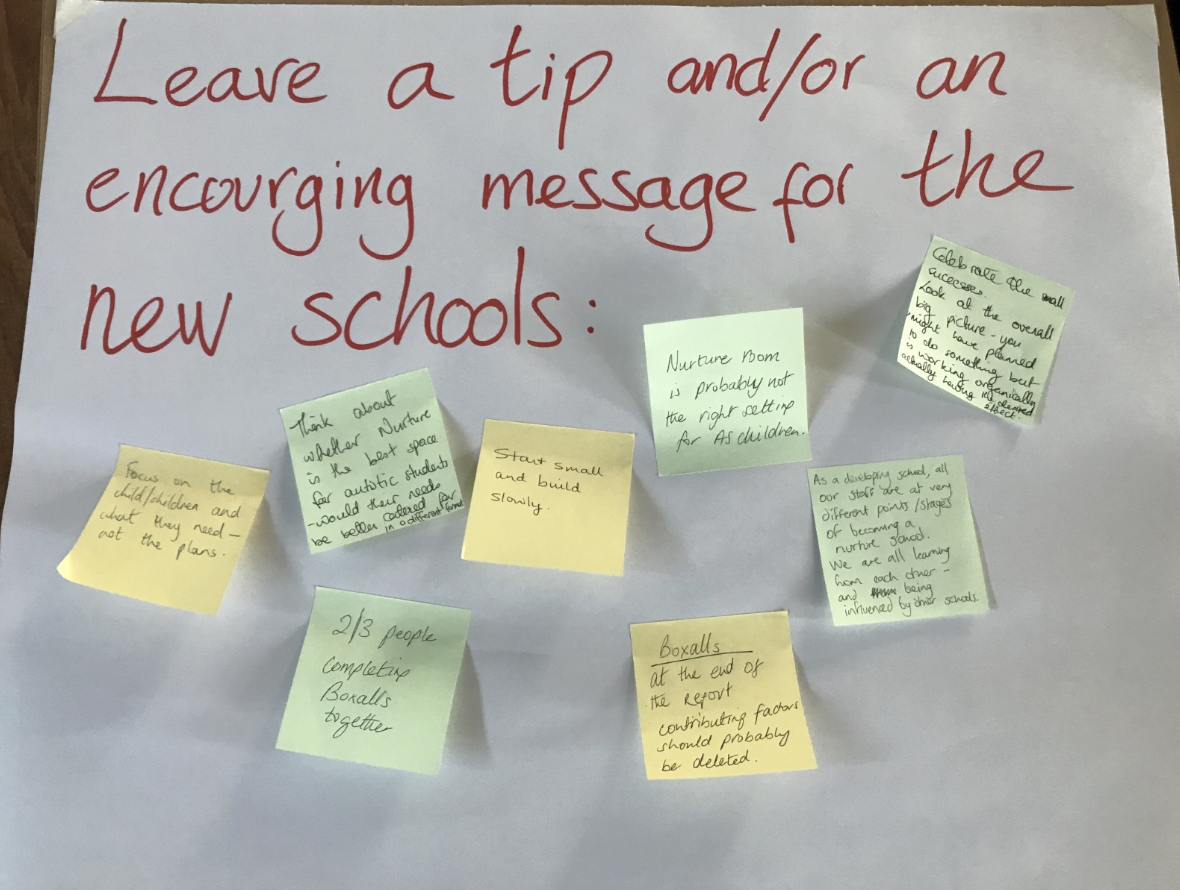 Leave a tip and/or an
encourging message for the
new schools:
Celebrate the small
successes.
Look at the overall
big picture - you
might have planned
to do something but
is working organically
actually having the desired
effect.
Nurture Room
is probably not
the right setting
for AS children.
Think about
whether Nurture
is the best space
for autistic students
- would their needs
be better catered for
in a different format
Start small
and build
slowly.
Focus on the
child/children and
what they need -
not the plans.
As a developing school, all
our staff are at very
different points/stages
of becoming a
nurture school.
We are all learning
from each other -
and being
influenced by other schools.
2/3 people
completing
Boxalls
together
Boxalls
at the end of
the report
contributing factors
should probably
be deleted.